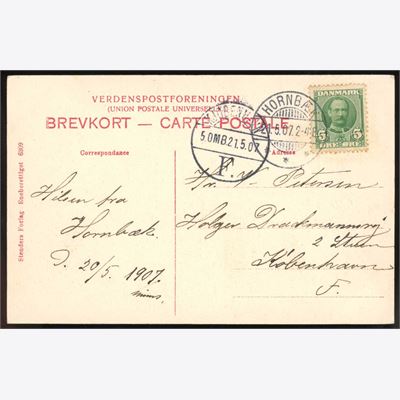 VERDENSPOSTFORENINGEN
(UNION POSTALE UNIVERSELLE)
BREVKORT — CARTE POSTALE
DANMARK
5 5
ØRE ØRE
HORNBÆK
21.5.07. 2-4
5.OMB 21.5.07
F.
Correspondance
Adresse
Stenders Forlag Eneberettiget 6909
Hilsen fra
Hornbæk.
D. 20/5. 1907.
Hr. Petersen
Holger Drachmannsvej
2
København
F.